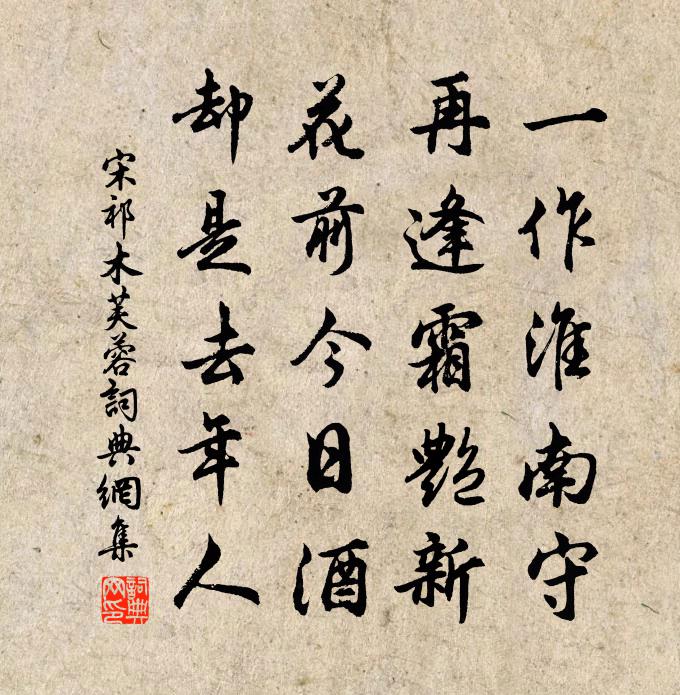 一作淮南守
再逢霜艷新
花前今日酒
却是去年人
宋祁木芙蓉詞典網集
詞典网印